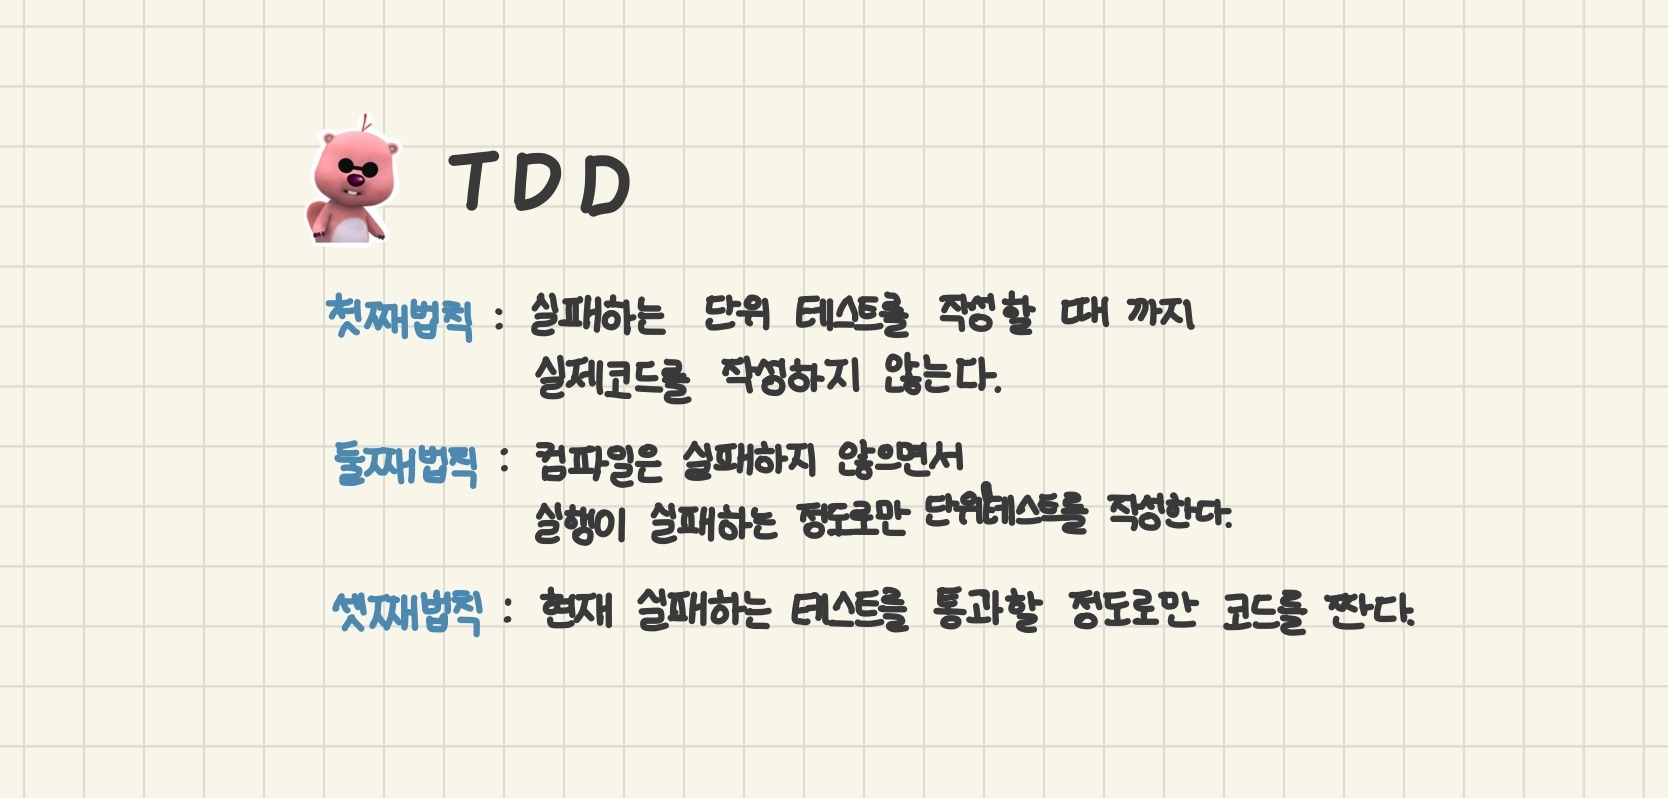 TDD
첫째법칙 : 실패하는 단위 테스트를 작성할 때 까지
실제코드를 작성하지 않는다.
둘째법칙 : 컴파일은 실패하지 않으면서
실행이 실패하는 정도로만 단위테스트를 작성한다.
셋째법칙 : 현재 실패하는 테스트를 통과할 정도로만 코드를 짠다.